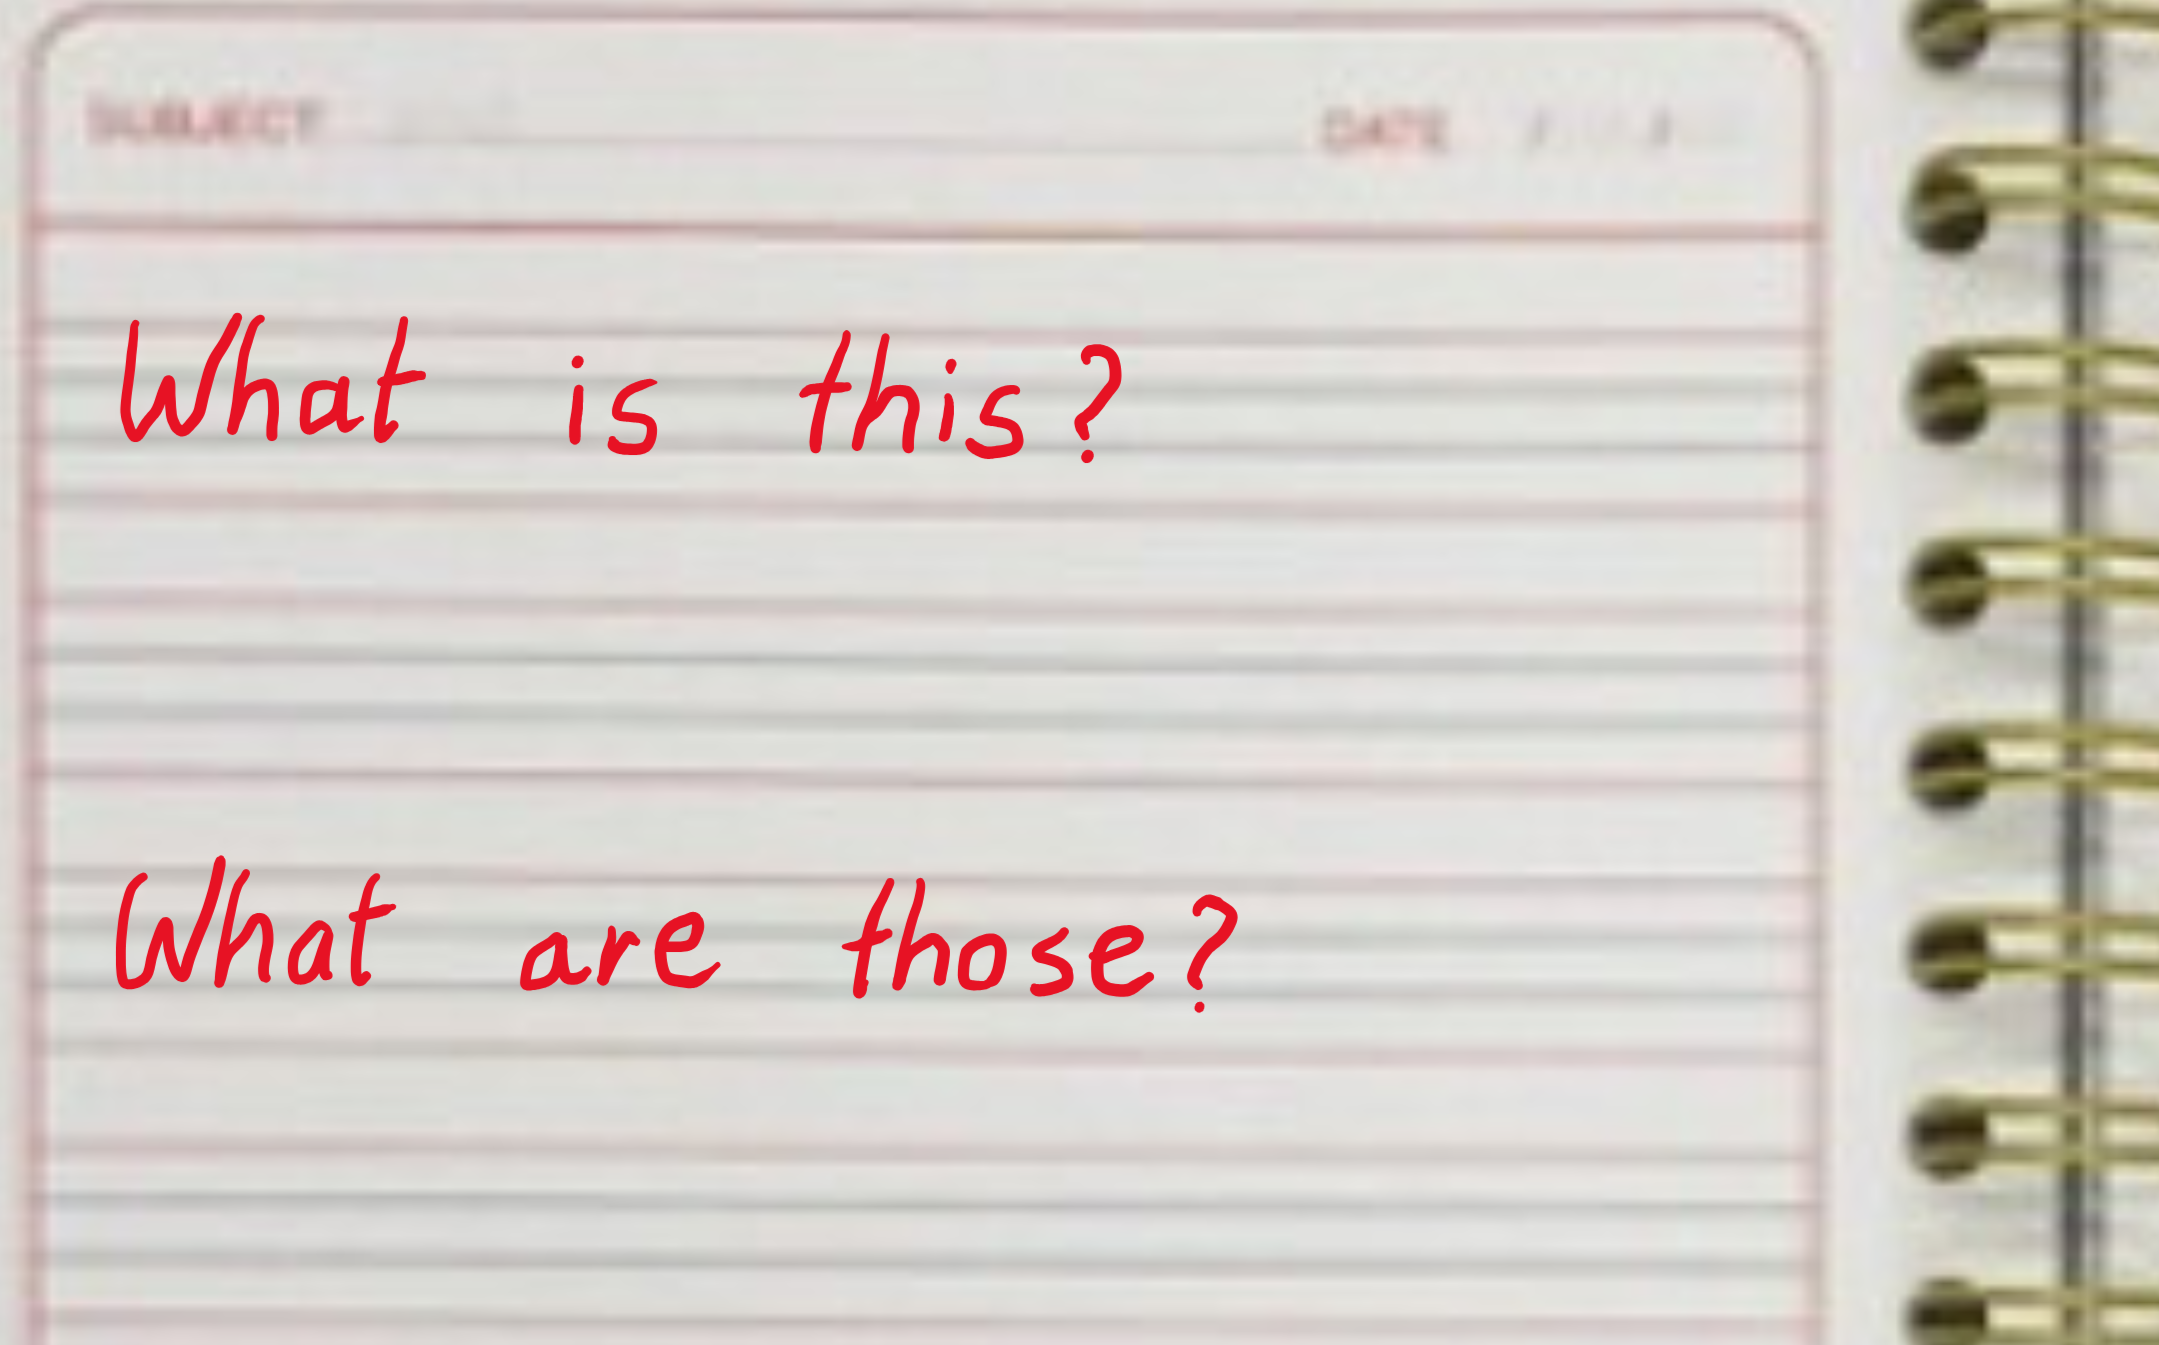 SUBJECT DATE / /
What is this?
What are those?